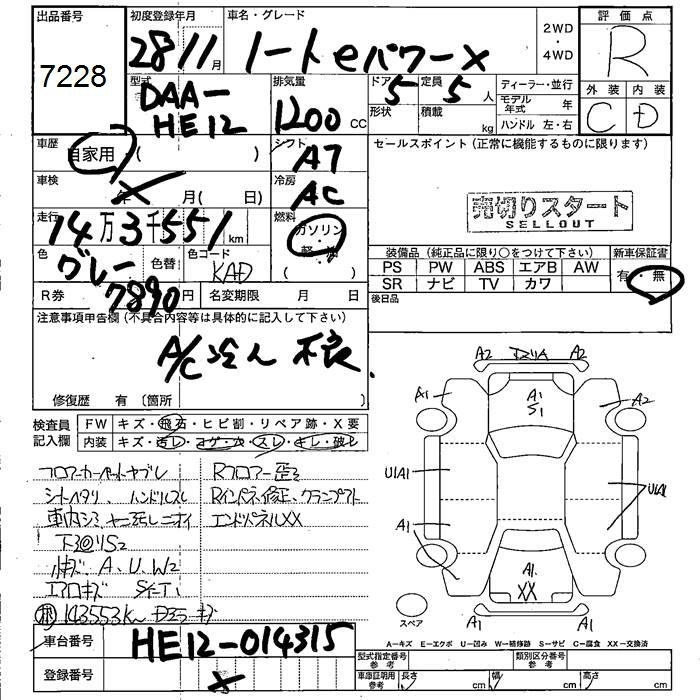 出品番号
7228
初度登録年月
28 11 月
車名・グレード
ノート eパワー X
2WD・4WD
評価点
R
型式
DAA-
HE12
排気量
1200 cc
ドア
5
形状
定員
5 人
積載
kg
ディーラー・並行
モデル年式 年
ハンドル 左・右
外装
C
内装
D
車歴
自家用 ( )
シフト
AT
セールスポイント (正常に機能するものに限ります)
車検
年 月( 日)
冷房
AC
売切りスタート
SELLOUT
走行
14万3千551km
燃料
ガソリン
軽油
色
グレー
色替
色コード
KAD
装備品 (純正品に限り○をつけて下さい)
新車保証書
PS PW ABS エアB AW
有・無
SR ナビ TV カワ
R券
7890円
名変期限 月 日
後日品
注意事項申告欄 (不具合内容等は具体的に記入して下さい)
A/C 冷えん 不良.
修復歴 有 〔箇所 〕
検査員記入欄
FW キズ・飛石・ヒビ割・リペア跡・X要
内装 キズ・汚レ・コゲ・穴・スレ・キレ・破レ
フロアーカーペットヤブレ
Rフロアー歪ミ
シートヘタリ、ハンドルスレ
Rインパネ修正、クランプアト
車内シミ、ヤニ汚レニオイ
エンドパネルXX
下廻リS2
小キズ、A、U、W2
エアロキズ
143553Km
A2 A2
A1 A1 S1 A2
U1A1 U1A1
A1
A1
XX
スペア
A1
車台番号
HE12-014315
A―キズ E―エクボ U―凹み W―補修跡 S―サビ C―腐食 XX―交換済
登録番号
型式指定番号参考
類別区分番号参考
車庫証明用参考
長さ cm
幅 cm
高さ cm